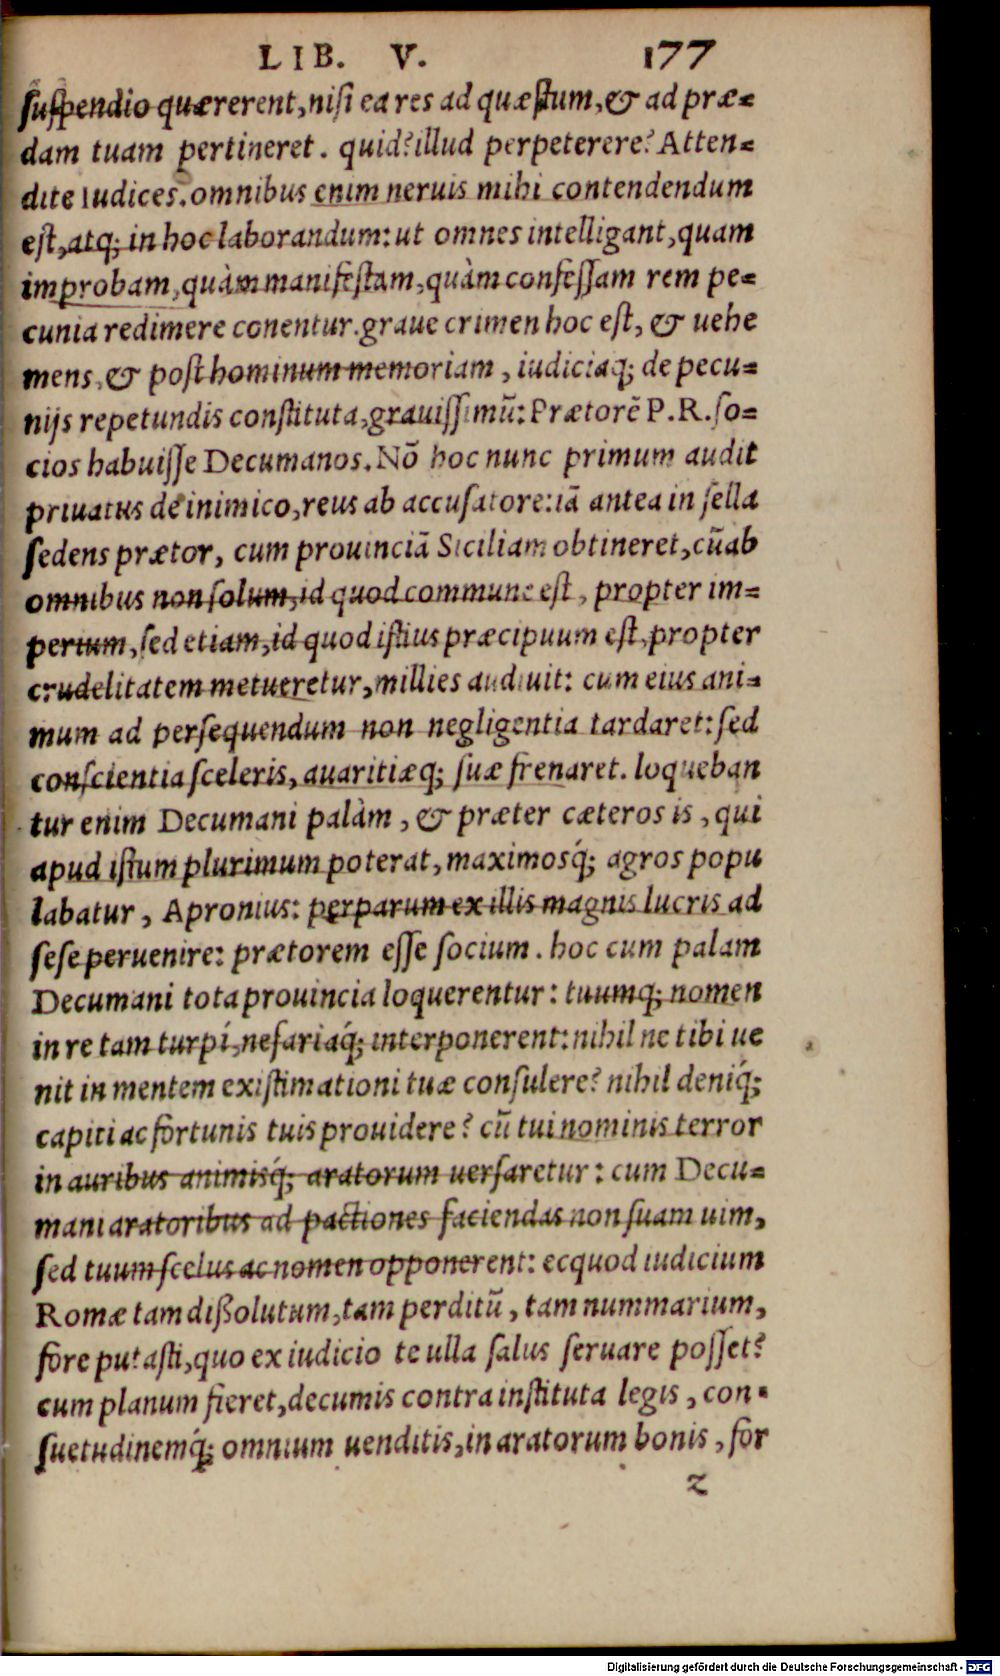 LIB. V. 177
suspendio quærerent, nisi ea res ad quæstum, & ad præ=
dam tuam pertineret. quid? illud perpeterere? Atten=
dite Iudices. omnibus enim neruis mihi contendendum
est, atq; in hoc laborandum: ut omnes intelligant, quam
improbam, quàm manifestam, quàm confessam rem pe=
cunia redimere conentur. graue crimen hoc est, & uehe
mens, & post hominum memoriam, iudiciaq; de pecu=
nijs repetundis constituta, grauissimũ: Prætorẽ P.R. so=
cios habuisse Decumanos. Nõ hoc nunc primum audit
priuatus de inimico, reus ab accusatore: iã antea in sella
sedens prætor, cum prouinciã Siciliam obtineret, cũ ab
omnibus non solum, id quod commune est, propter im=
perium, sed etiam, id quod istius præcipuum est, propter
crudelitatem metueretur, millies audiuit: cum eius ani=
mum ad persequendum non negligentia tardaret: sed
conscientia sceleris, auaritiæq; suæ frenaret. loqueban
tur enim Decumani palàm, & præter cæteros is, qui
apud istum plurimum poterat, maximosq́; agros popu
labatur, Apronius: perparum ex illis magnis lucris ad
sese peruenire: prætorem esse socium. hoc cum palam
Decumani tota prouincia loquerentur: tuumq; nomen
in re tam turpi, nefariaq́; interponerent: nihil ne tibi ue
nit in mentem existimationi tuæ consulere? nihil deniq́;
capiti ac fortunis tuis prouidere? cũ tui nominis terror
in auribus animisq́; aratorum uersaretur: cum Decu=
mani aratoribus ad pactiones faciendas non suam uim,
sed tuum scelus ac nomen opponerent: ecquod iudicium
Romæ tam dißolutum, tam perditũ, tam nummarium,
fore putasti, quo ex iudicio te ulla salus seruare posset?
cum planum fieret, decumis contra instituta legis, con=
suetudinemq́; omnium uenditis, in aratorum bonis, for
z
Digitalisierung gefördert durch die Deutsche Forschungsgemeinschaft - DFG